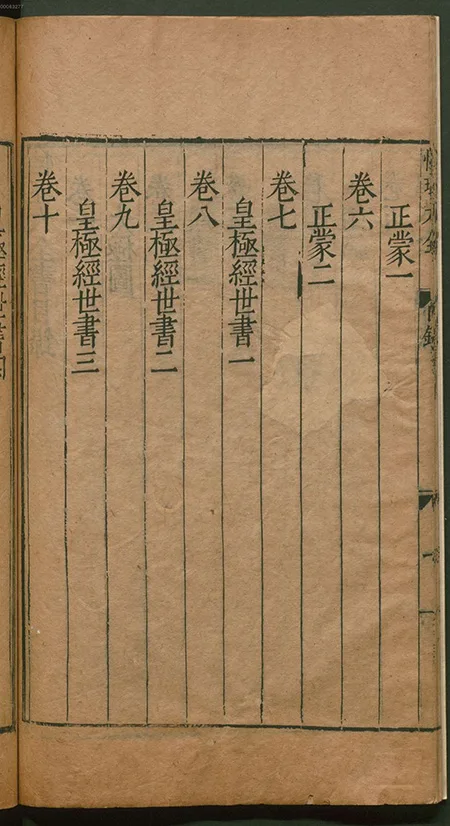 正蒙一
卷六
正蒙二
卷七
皇極經世書一
卷八
皇極經世書二
卷九
皇極經世書三
卷十